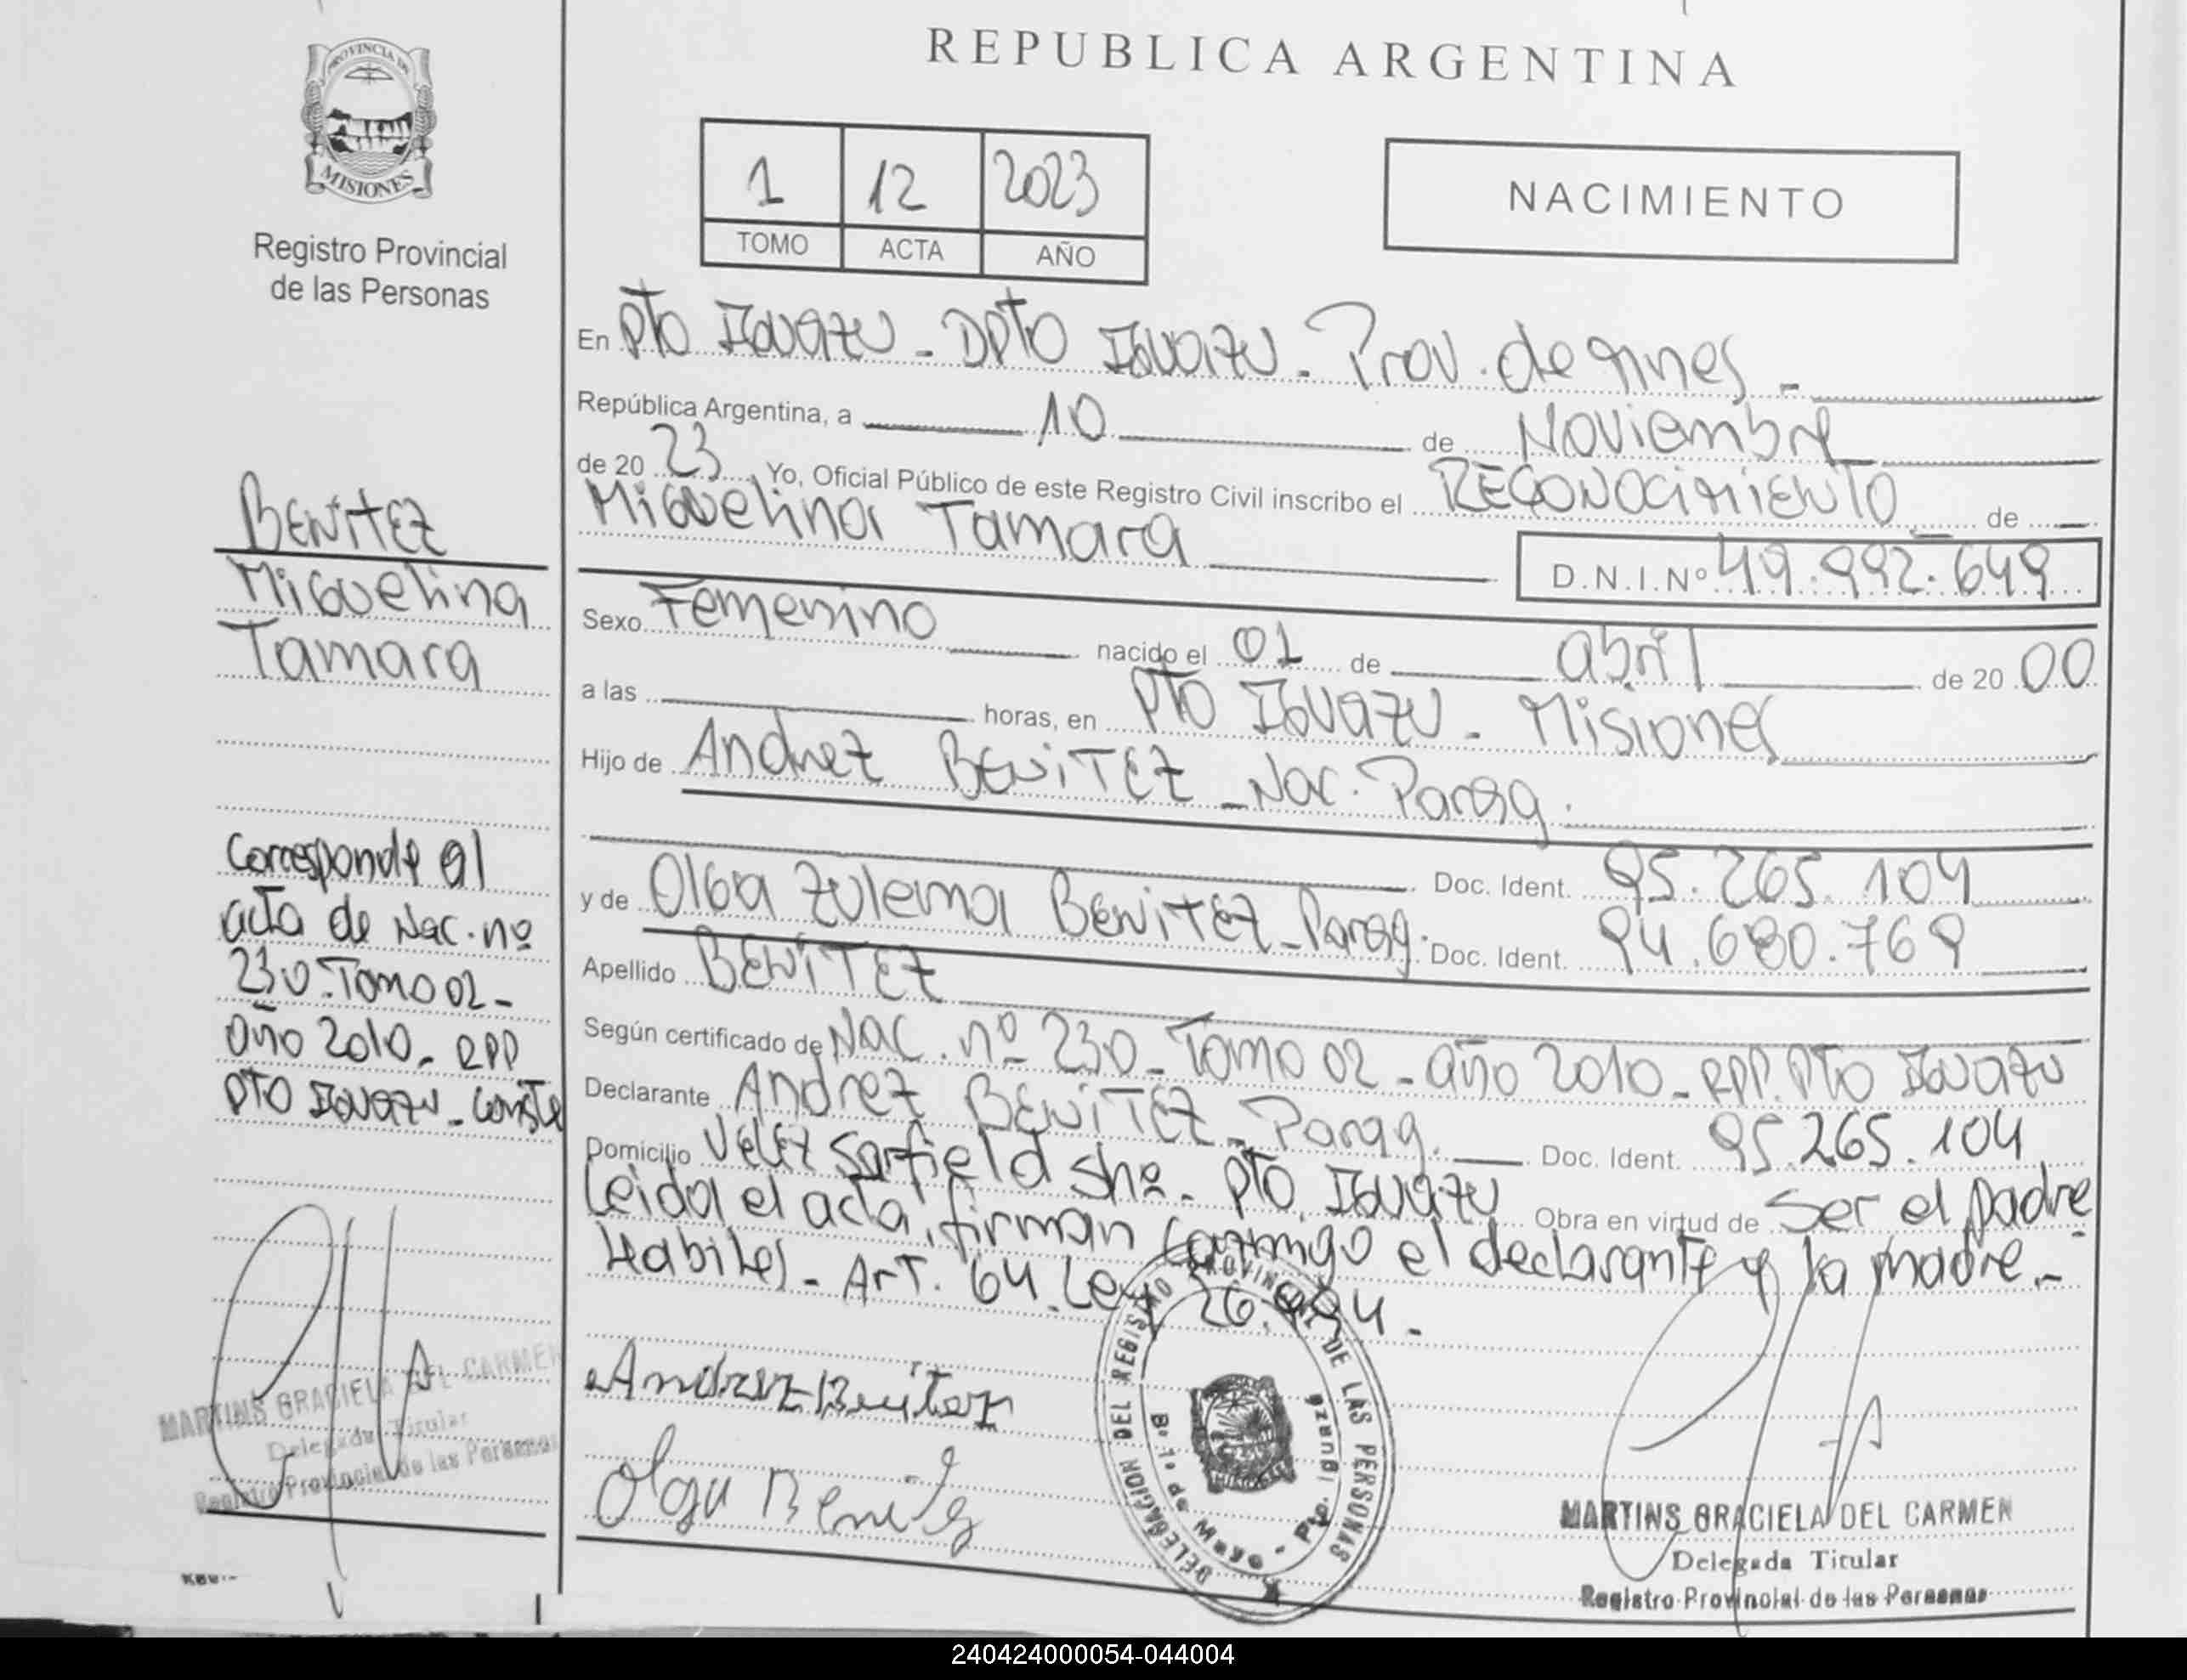 PROVINCIA DE
MISIONES
Registro Provincial
de las Personas
BENITEZ
Miguelina
Tamara
Corresponde al
acta de Nac. nº
230. Tomo 02 -
año 2010 - RPP
PTO IGUAZU - Conste
MARTINS GRACIELA DEL CARMEN
Delegada Titular
Registro Provincial de las Personas
REPUBLICA ARGENTINA
1 12 2023
TOMO ACTA AÑO
NACIMIENTO
En PTO IGUAZU - DPTO IGUAZU - Prov. de Mnes -
República Argentina, a 10 de Noviembre
de 20 23 Yo, Oficial Público de este Registro Civil inscribo el RECONOCIMIENTO de
Miguelina Tamara
D.N.I.Nº 49.992.649
Sexo Femenino nacido el 01 de abril de 20 00
a las horas, en PTO IGUAZU - Misiones
Hijo de Andrez BENITEZ - Nac. Parag.
Doc. Ident. 95.265.104
y de Olga Zulema BENITEZ - Parag. Doc. Ident. 94.680.769
Apellido BENITEZ
Según certificado de Nac. nº 230 - Tomo 02 - año 2010 - RPP. PTO IGUAZU
Declarante Andrez BENITEZ - Parag. Doc. Ident. 95.265.104
Domicilio Velez Sarfield Shº - PTO. IGUAZU Obra en virtud de Ser el padre
Leida el acta, firman conmigo el declarante y la madre -
Habiles - ArT. 64 Ley 26.994 -
Andrez Benitez
Olga Benitez
DELEGACION DEL REGISTRO PROVINCIAL DE LAS PERSONAS
Pto. Iguazú
MARTINS GRACIELA DEL CARMEN
Delegada Titular
Registro Provincial de las Personas
240424000054-044004